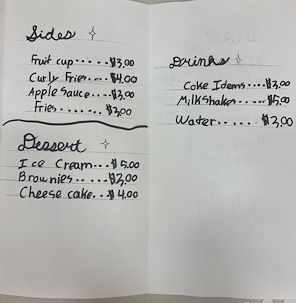 Sides
Fruit cup.....$3.00
Curly Fries....$4.00
Apple Sauce...$3.00
Fries.....$3.00
Dessert
Ice Cream...$5.00
Brownies.....$3.00
Cheese cake..$4.00
Drinks
Coke Idems....$3.00
Milkshakes....$5.00
Water.....$3.00